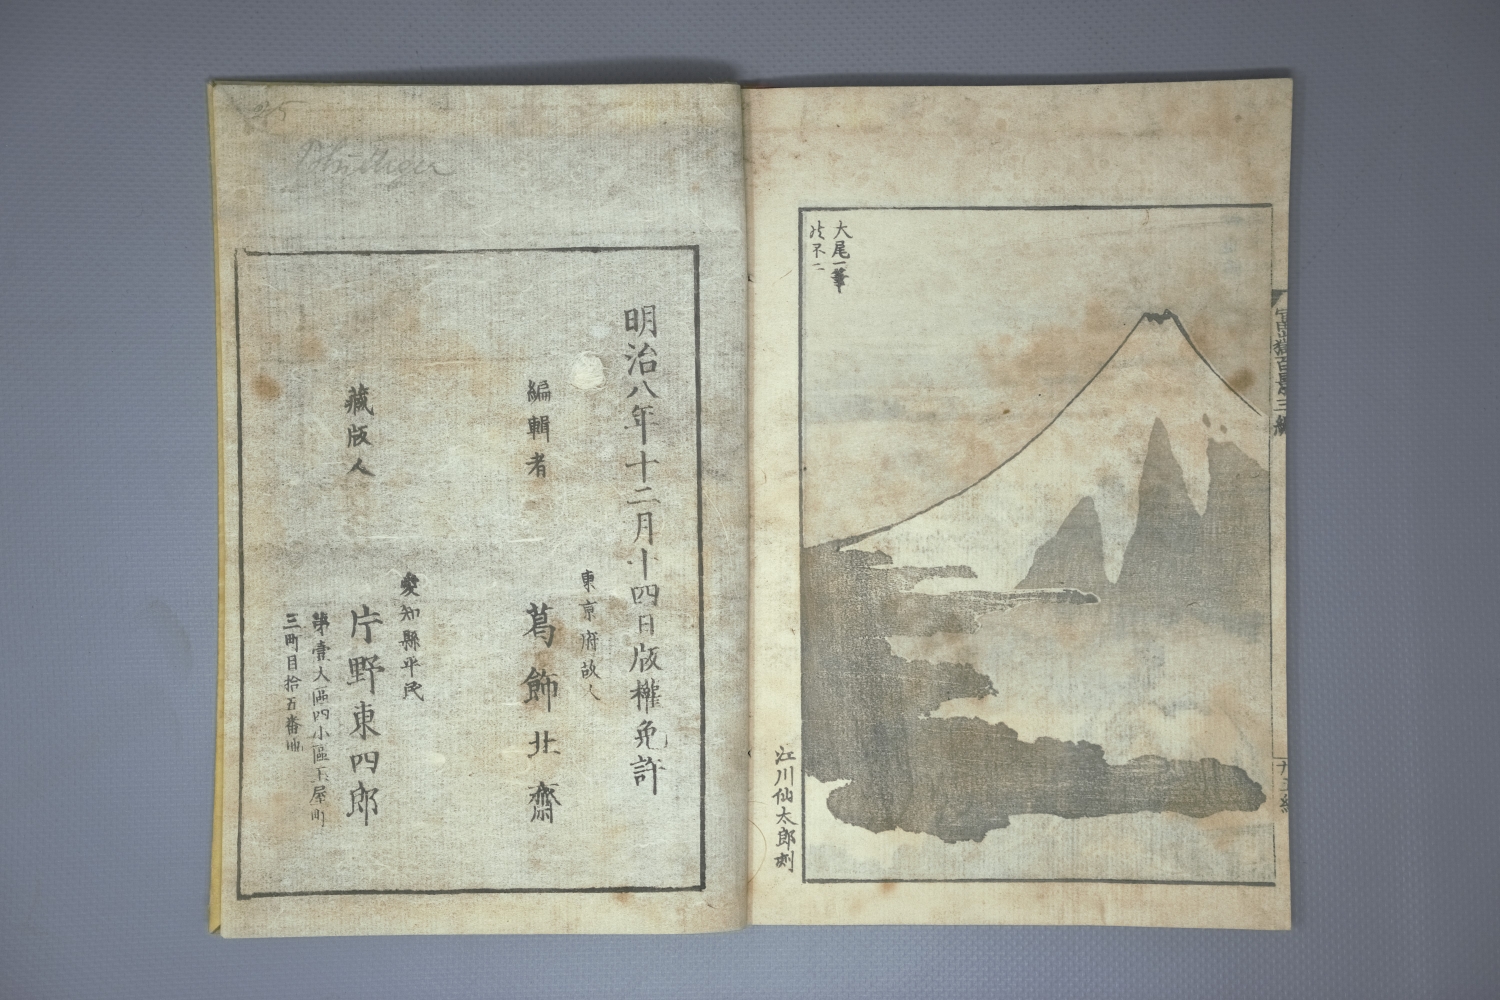 大尾一筆
の不二
江川仙太郎刻
明治八年十二月十四日版權免許
東京府故人
編輯者 葛飾北齋
愛知縣平民
藏版人 片野東四郎
第壹大區四小區玉屋町
三町目拾五番地